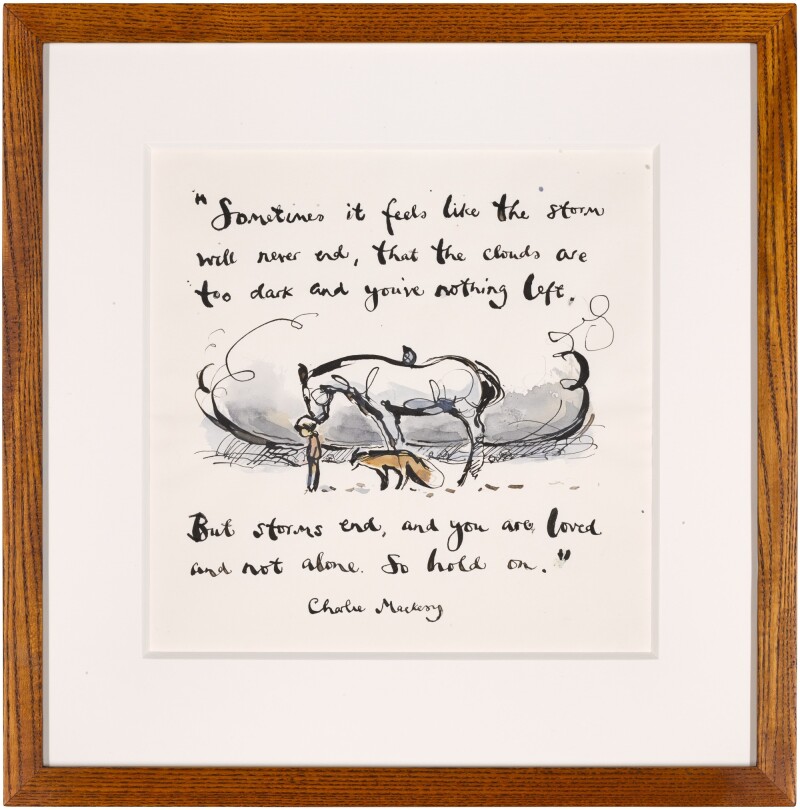 "Sometimes it feels like the storm
will never end, that the clouds are
too dark and you've nothing left.
But storms end, and you are loved
and not alone. So hold on."
Charlie Mackesy